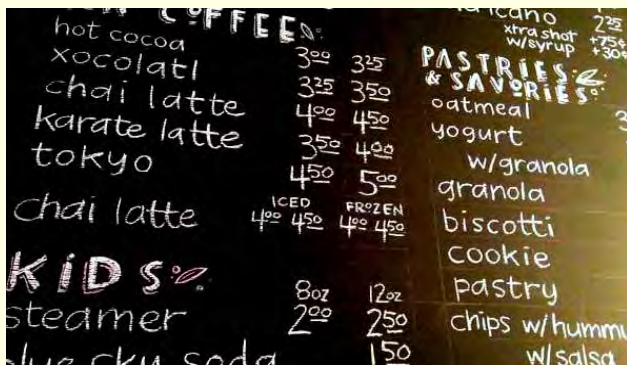 COFFEE
hot cocoa 3⁰⁰ 3²⁵
xocolatl 3²⁵ 3⁵⁰
chai latte 4⁰⁰ 4⁵⁰
karate latte 3⁵⁰ 4⁰⁰
tokyo 4⁵⁰ 5⁰⁰
ICED FROZEN
chai latte 4⁰⁰ 4⁵⁰ 4⁰⁰ 4⁵⁰
KiDS
8oz 12oz
steamer 2⁰⁰ 2⁵⁰
sky soda 1⁵⁰
2²⁵
xtra shot +75¢
w/syrup +30¢
PASTRiES
& SAVORiES
oatmeal
yogurt
w/granola
granola
biscotti
cookie
pastry
chips w/hummu
w/salsa